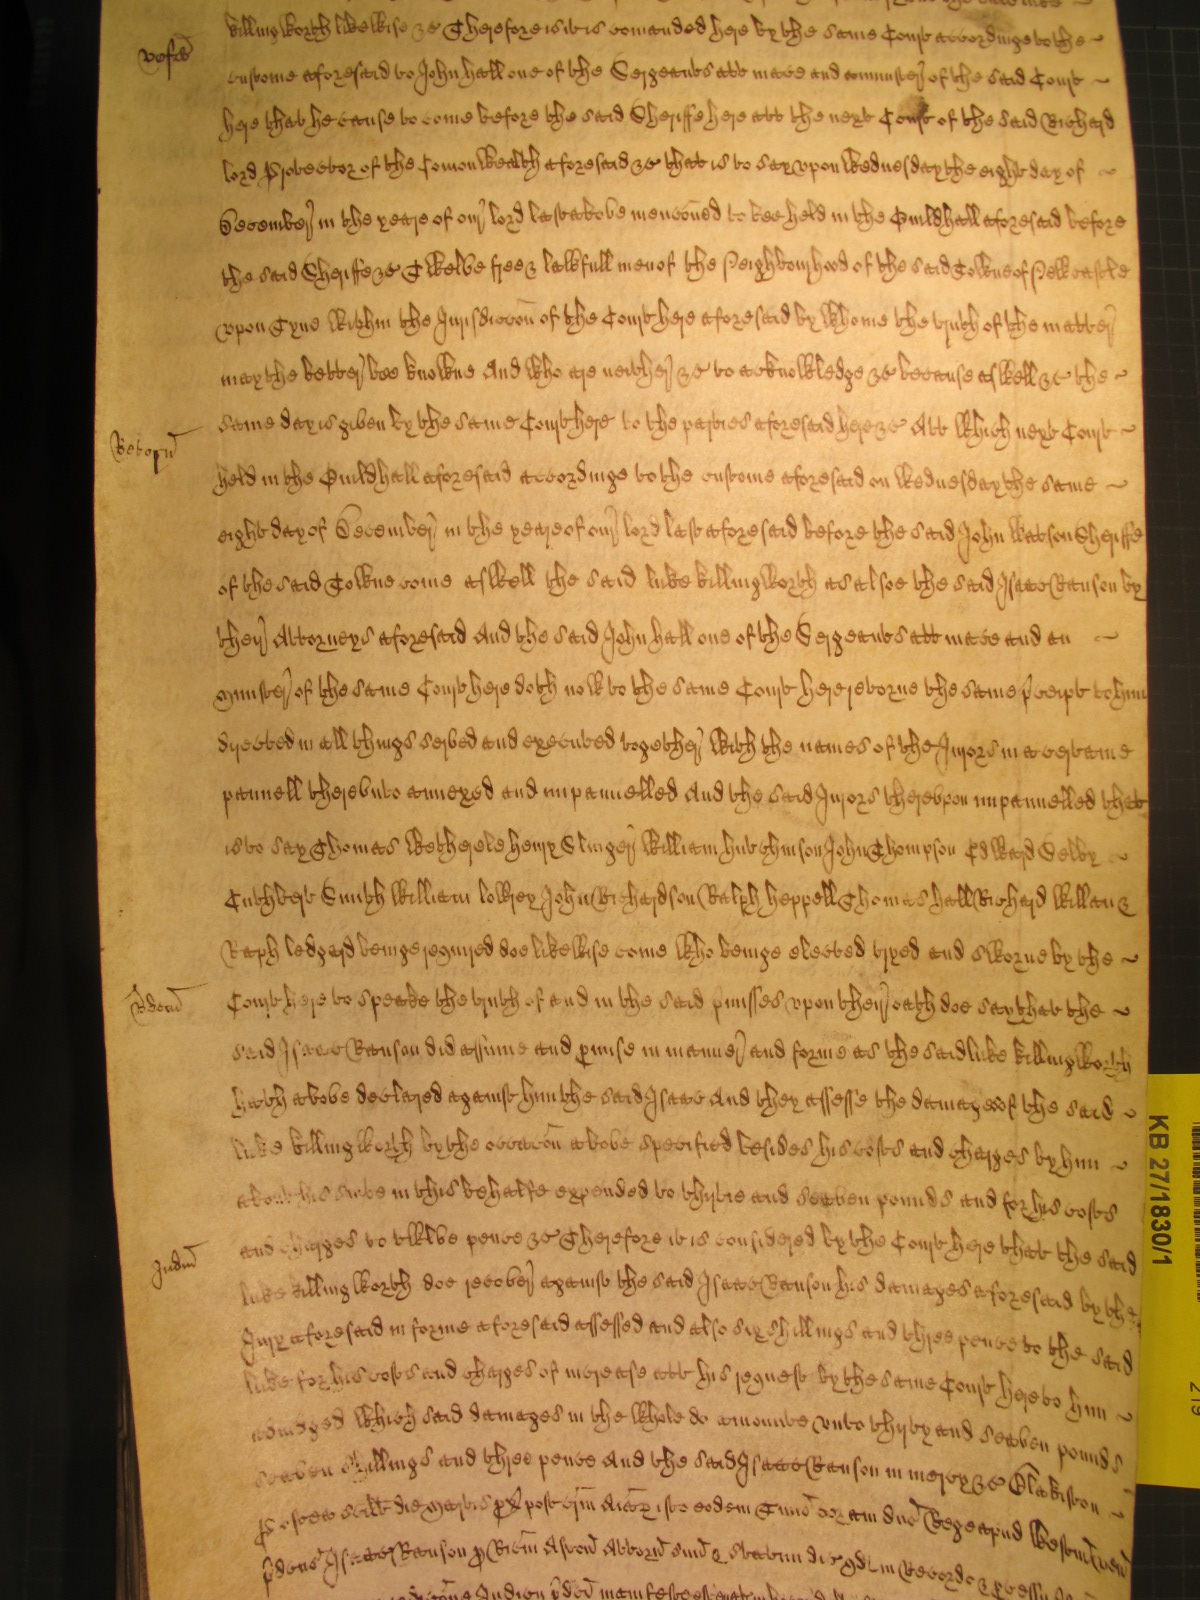 Killingworth likewise &c Therefore it is comanded here by the same Court accordinge to the
vesis
custome aforesaid to John Hall one of the Sergeants att mace and an minister of the said Court
here that he cause to come before the said Sheriffe here att the next Court of the said Richard
lord Protector of the Comonwealth aforesaid &c that is to say upon Wednesday the eight day of
December in the yeare of our lord last above menconed to bee held in the Guildhall aforesaid before
the said Sheriffe &c Twelve free & lawfull men of the Neighbourhood of the said Towne of Newcastle
upon Tyne within the Jurisdiccon of the Court here aforesaid by whome the truth of the matter
may the better bee knowne And who are neither &c to acknowledge &c because aswell &c the
same day is given by the same Court here to the parties aforesaid here &c Att which next Court
Retorn
held in the Guildhall aforesaid accordinge to the custome aforesaid on Wednesday the same
eight day of December in the yeare of our lord last aforesaid before the said John Watson Sheriffe
of the said Towne come aswell the said luke Killingworth as alsoe the said Isaac Ranson by
their Attorneys aforesaid And the said John Hall one of the Sergeants att mace and an
minister of the same Court here doth now to the same Court here retorne the same precipt to him
directed in all things served and executed together with the names of the Jurors in a certaine
pannell thereunto annexed and impannelled And the said Jurors thereupon impannelled that
is to say Thomas Wetherele Henry Slinger William Hutchinson John Thompson Edward Selby
Cuthbert Smith William lowrey John Richardson Ralph Heppell Thomas Hall Richard Willan &
Raph ledgard beinge required doe likewise come who beinge elected tryed and sworne by the
Court here to speake the truth of and in the said pmisses upon their oath doe say that the
said Isaac Ranson did assume and pmise in manner and forme as the said luke Killingworth
hath above declared against him the said Isaac And they assesse the damages of the said
luke Killingworth by the occacon above specified besides his costs and charges by him
about his suite in this behalfe expended to thirtie and seaven pounds and for his costs
and charges to twelve pence &c Therefore it is considered by the Court here that the said
Judm
luke Killingworth doe recover against the said Isaac Ranson his damages aforesaid by the
Jury aforesaid in forme aforesaid assessed and also six shillings and three pence to the said
luke for his costs and charges of increase att his request by the same Court here to him
adiudged which said damages in the whole do amounte unto thirty and seaven pounds
seaven shillings and three pence And the said Isaac Ranson in mercy &c Blakiston
die Martis post isto eodem coram Rege apud Westm
Isaac Ranson Attorn suu & statim dic qd in Recordo &
KB 27/1830/1
219